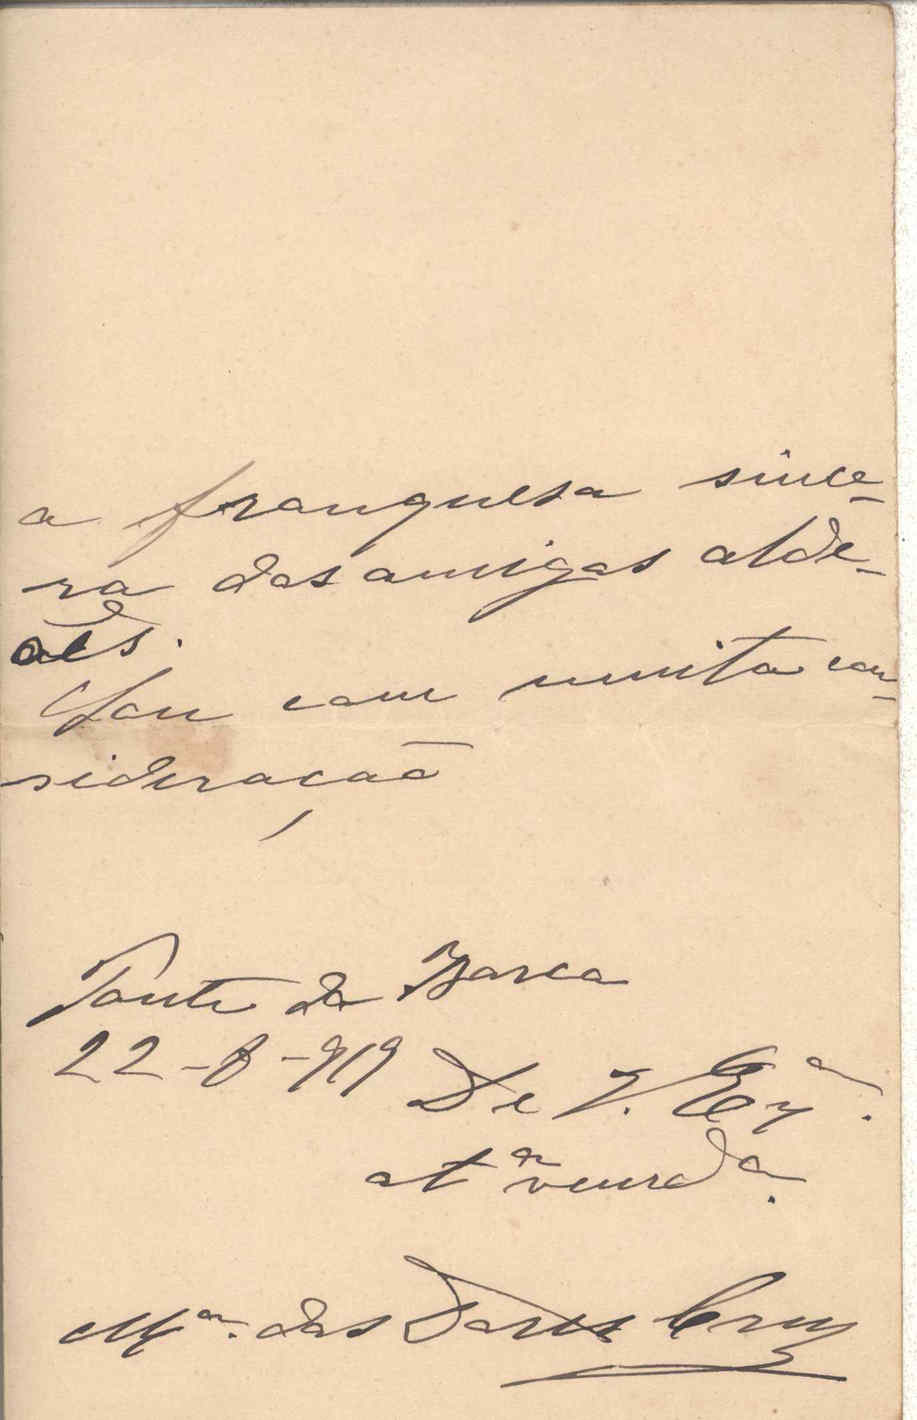 a franquesa since-
ra das amigas alde-
ães.
Sou com muita con-
sideração
Ponte da Barca
22-8-919 De V. Exª.
atª venrdª.
Mª. das Dores Cruz